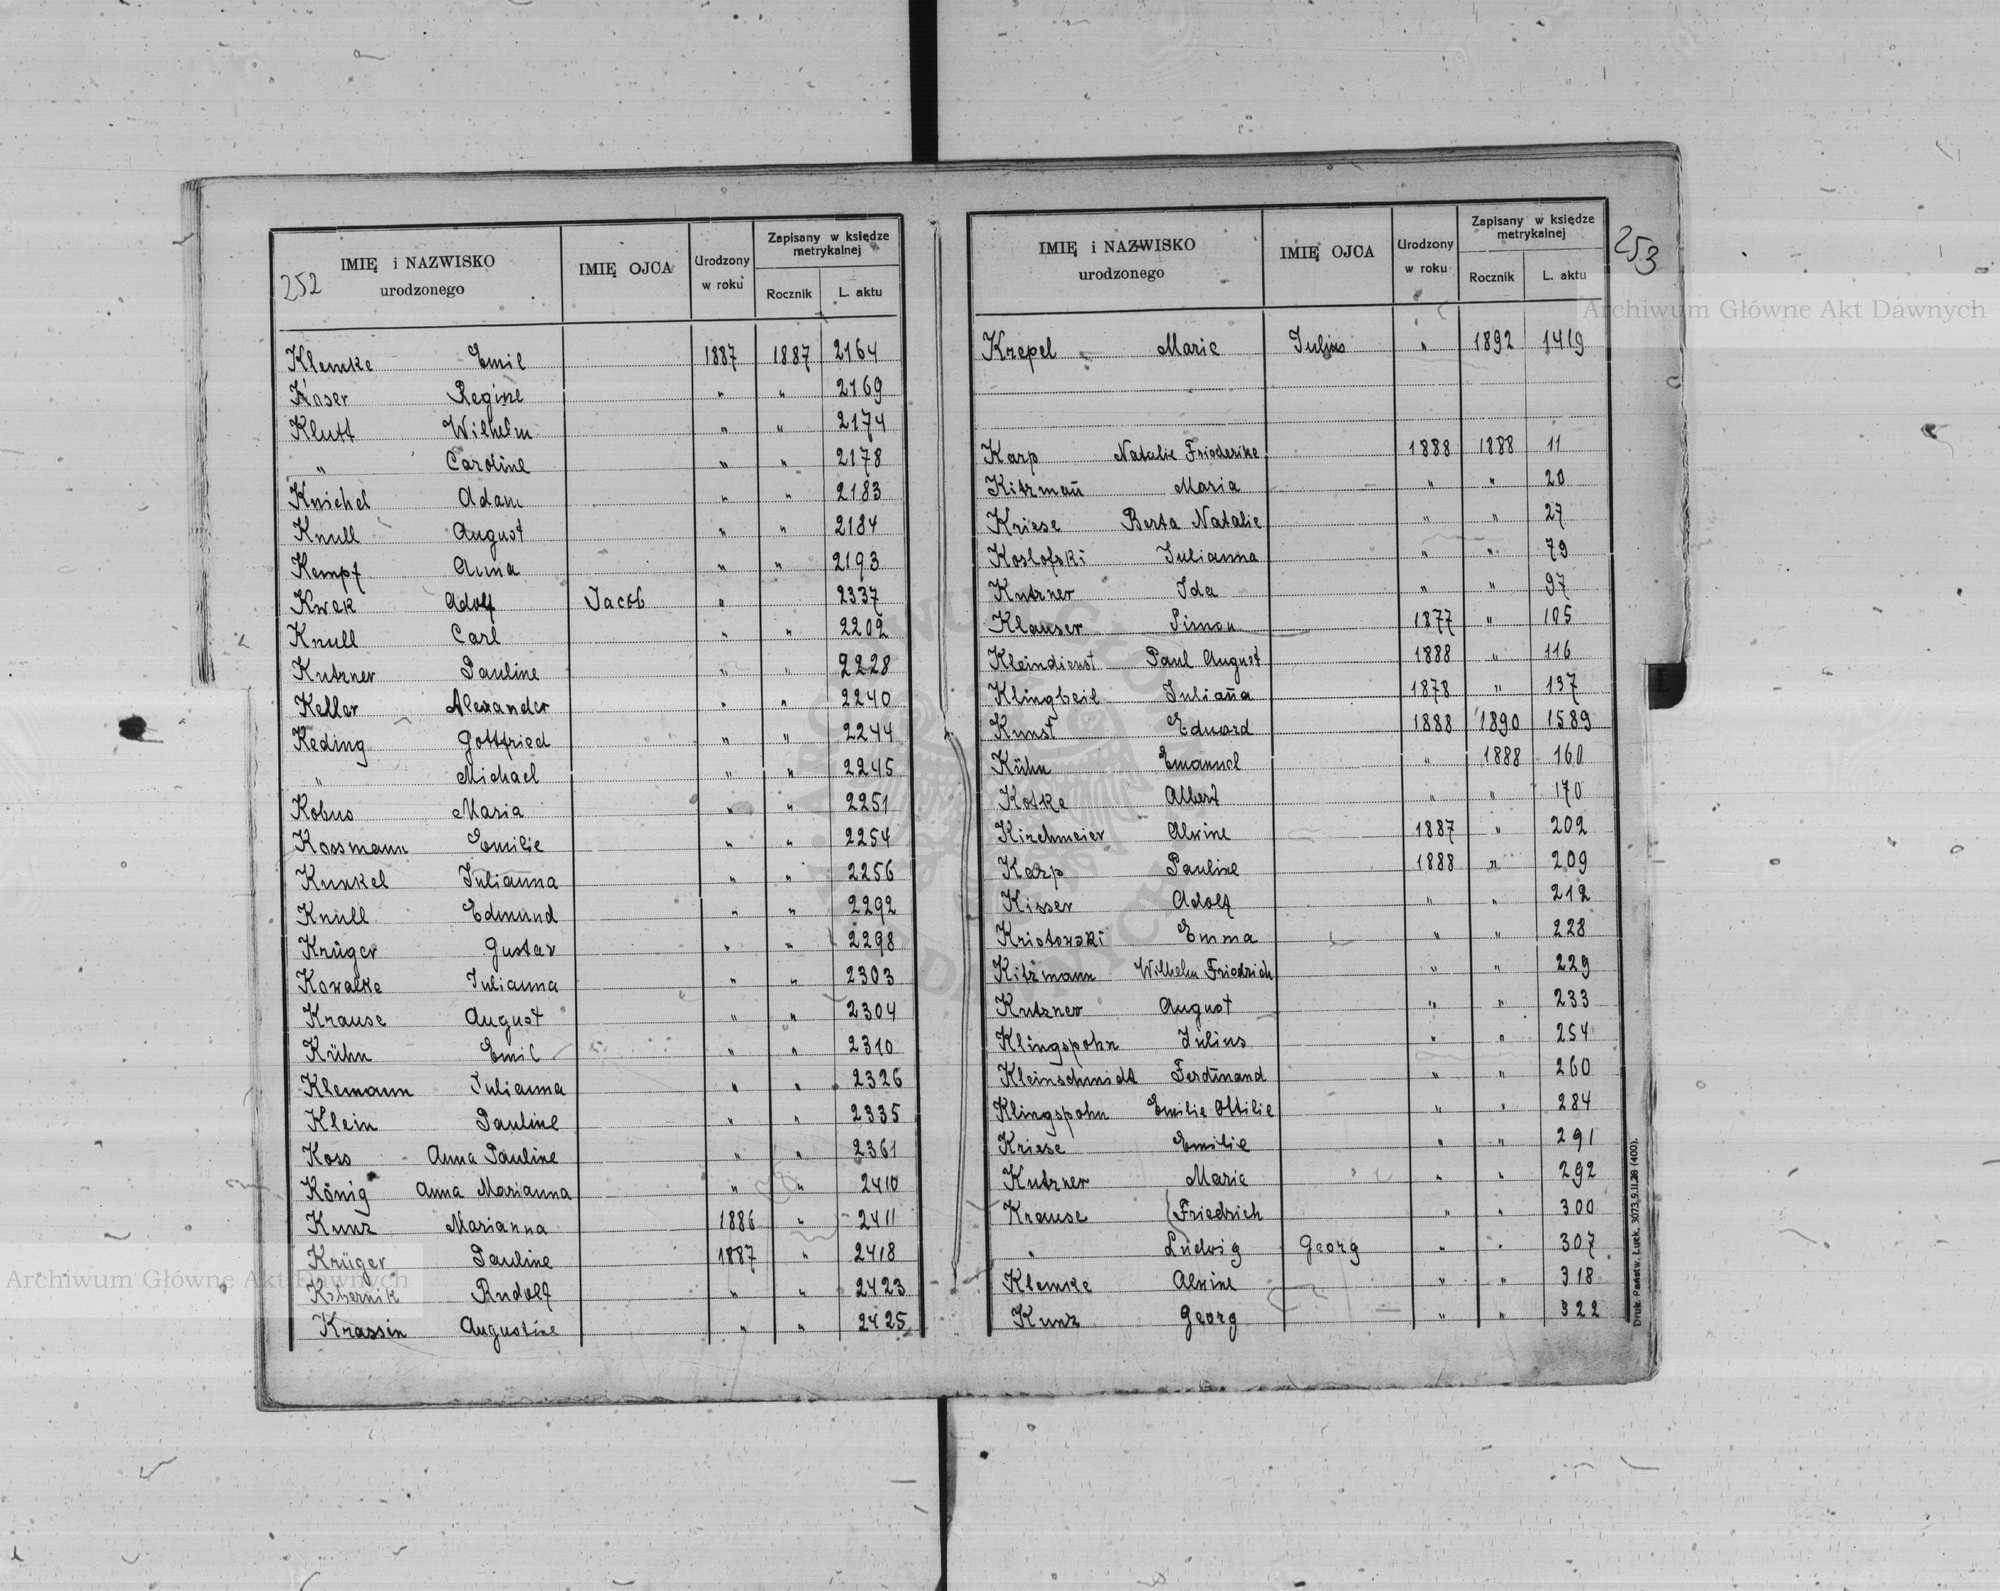 252
IMIĘ i NAZWISKO urodzonego | IMIĘ OJCA | Urodzony w roku | Zapisany w księdze metrykalnej
Rocznik | L. aktu
Klemke Emil 1887 1887 2164
Kaser Regine " " 2169
Klutt Wilhelm " " 2174
" Caroline " " 2178
Knichel Adam " " 2183
Knull August " " 2184
Kempf Anna " " 2193
Kwek Adolf Jacob " 2337
Knull Carl " " 2202
Kutzner Pauline " " 2228
Keller Alexander " " 2240
Keding Gottfried " " 2244
" Michael " " 2245
Kobus Maria " " 2251
Kossmann Emilie " " 2254
Kunkel Julianna " " 2256
Knull Edmund " " 2292
Krüger Gustav " " 2298
Kowalke Julianna " " 2303
Krause August " " 2304
Kühn Emil " " 2310
Klemann Julianna " " 2326
Klein Pauline " " 2335
Koss Anna Pauline " " 2361
König Anna Marianna " " 2410
Kunz Marianna 1886 " 2411
Krüger Pauline 1887 " 2418
Kobernik Rudolf " " 2423
Krassin Augustine " " 2425
253
IMIĘ i NAZWISKO urodzonego | IMIĘ OJCA | Urodzony w roku | Zapisany w księdze metrykalnej
Rocznik | L. aktu
Krepel Marie Julius " 1892 1419
Karp Natalie Friederike 1888 1888 11
Kitzmañ Maria " " 20
Kriese Berta Natalie " " 27
Koslofski Julianna " " 79
Kutzner Ida " " 97
Klauser Simon 1877 " 105
Kleindienst Paul August 1888 " 116
Klingbeil Juliaña 1878 " 137
Kunst Eduard 1888 1890 1589
Kühn Emanuel " 1888 160
Kotke Albert " " 170
Kirchmeier Alwine 1887 " 202
Karp Pauline 1888 " 209
Kisser Adolf " " 212
Kristowski Emma " " 228
Kitzmann Wilhelm Friedrich " " 229
Kutzner August " " 233
Klingspohn Julius " " 254
Kleinschmidt Ferdinand " " 260
Klingspohn Emilie Ottilie " " 284
Kriese Emilie " " 291
Kutzner Marie " " 292
Krause Friedrich " " 300
" Ludwig Georg " " 307
Klemke Alwine " " 318
Kunz Georg " " 322
Druk. Państw. Łuck. 3073.9.II.28 (400).
Archiwum Główne Akt Dawnych
Archiwum Główne Akt Dawnych